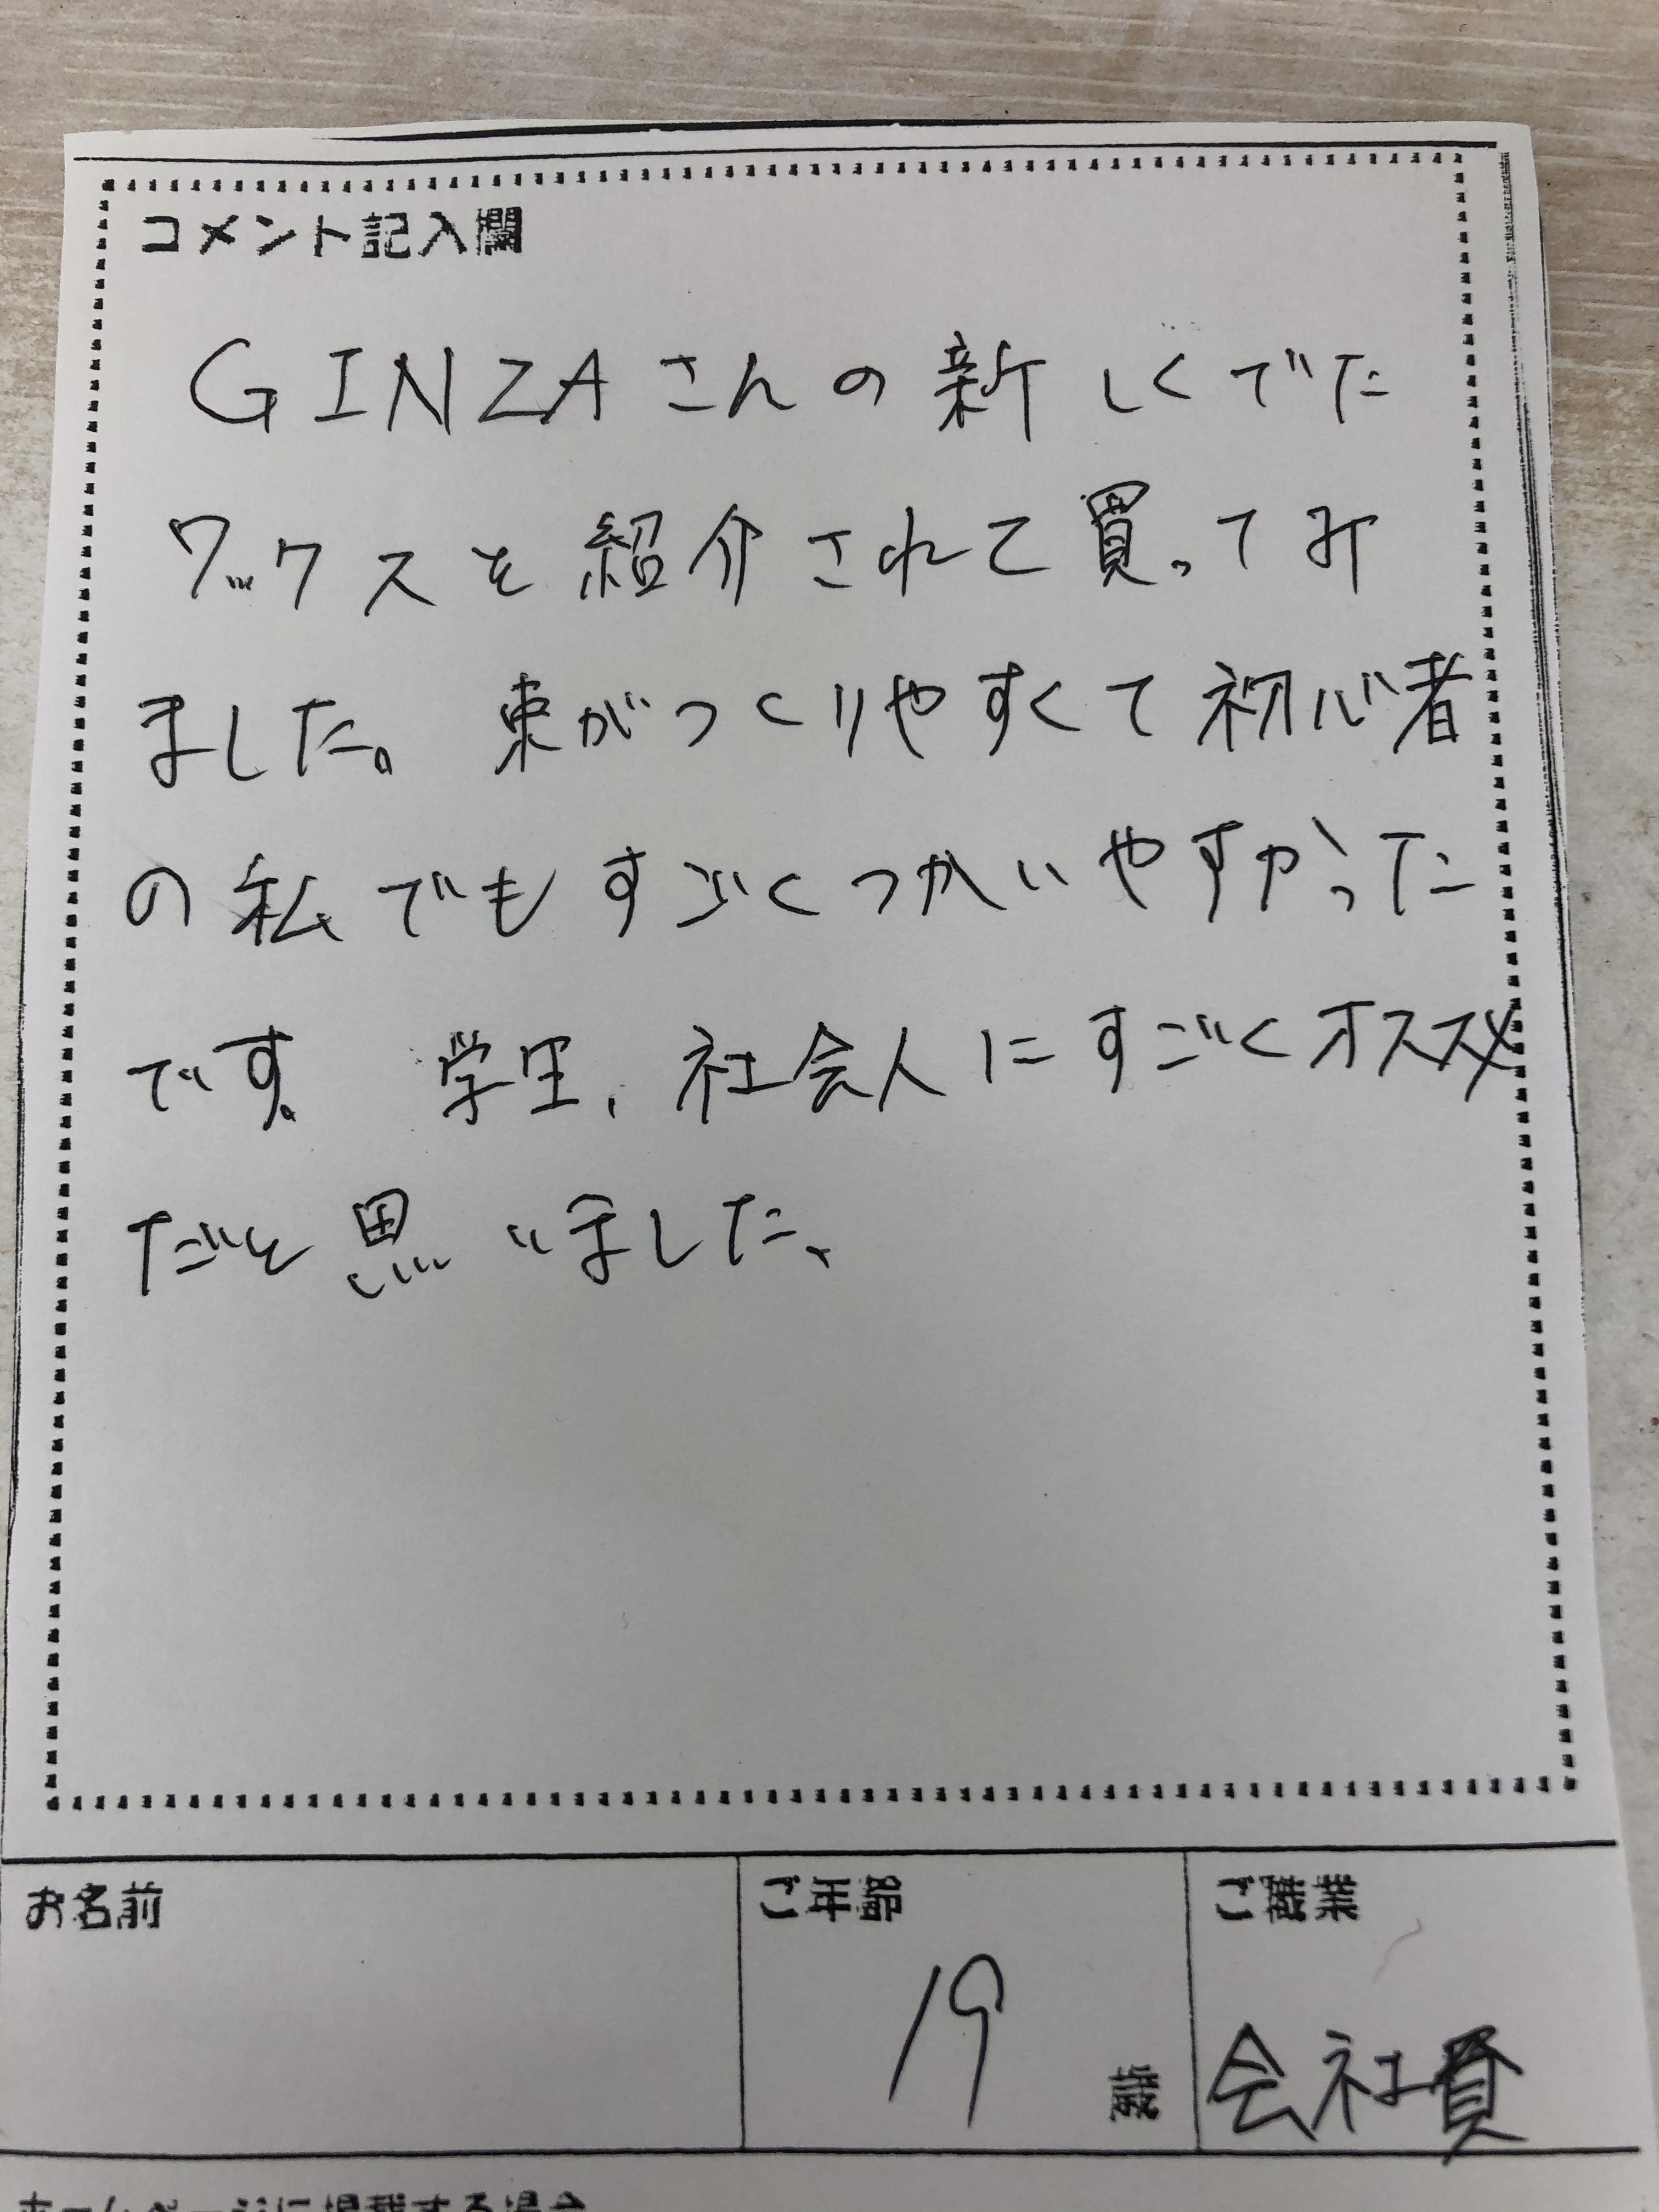 コメント記入欄
GINZAさんの新しくでた
ワックスを紹介されて買ってみ
ました。束がつくりやすくて初心者
の私でもすごくつかいやすかった
です。学生、社会人にすごくオススメ
だと思いました、
お名前
ご年齢
ご職業
19
歳
会社員
ホームページに掲載する場合